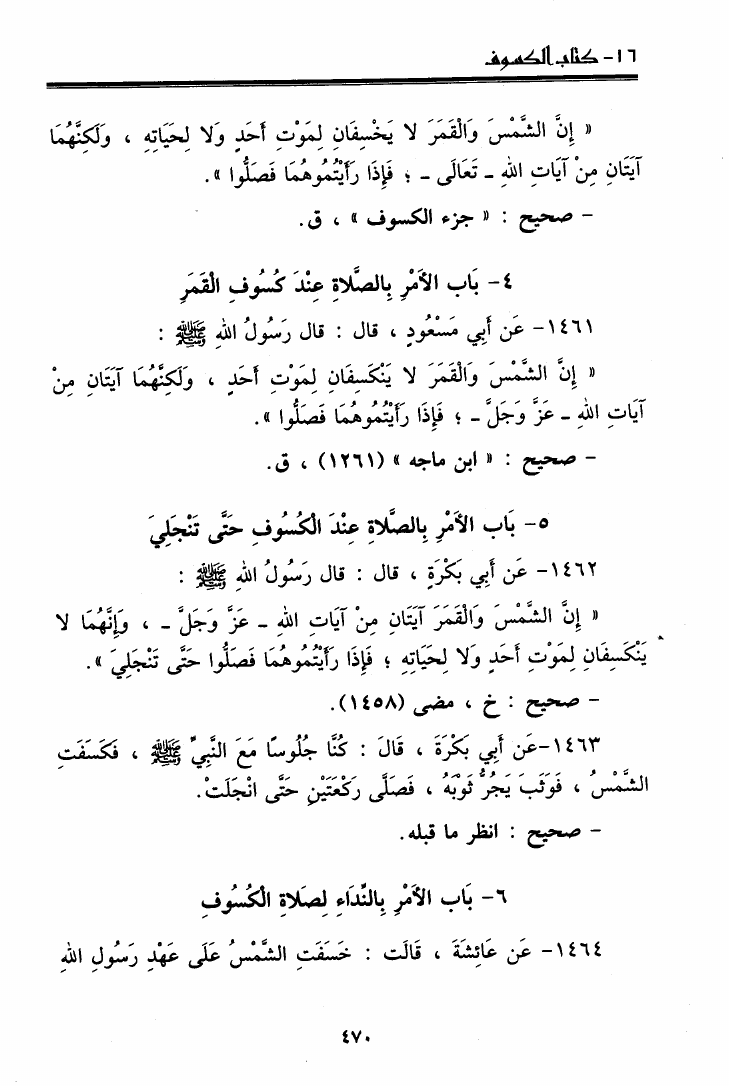 ١٦- كتاب الكسوف
« إِنَّ الشَّمْسَ وَالْقَمَرَ لا يَخْسِفَانِ لِمَوْتِ أَحَدٍ وَلا لِحَيَاتِهِ ، وَلَكِنَّهُمَا
آيَتَانِ مِنْ آيَاتِ اللهِ ـ تَعَالَى ـ ؛ فَإِذَا رَأَيْتُمُوهُمَا فَصَلُّوا ».
– صحيح : « جزء الكسوف » ، ق.
٤- بَاب الأَمْرِ بِالصَّلاةِ عِنْدَ كُسُوفِ الْقَمَرِ
١٤٦١- عَن أَبِي مَسْعُودٍ ، قال : قال رَسُولُ اللهِ ﷺ :
« إِنَّ الشَّمْسَ وَالْقَمَرَ لا يَنْكَسِفَانِ لِمَوْتِ أَحَدٍ ، وَلَكِنَّهُمَا آيَتَانِ مِنْ
آيَاتِ اللهِ ـ عَزَّ وَجَلَّ ـ ؛ فَإِذَا رَأَيْتُمُوهُمَا فَصَلُّوا ».
– صحيح : « ابن ماجه » (١٢٦١) ، ق.
٥- بَاب الأَمْرِ بِالصَّلاةِ عِنْدَ الْكُسُوفِ حَتَّى تَنْجَلِيَ
١٤٦٢- عَن أَبِي بَكْرَةٍ ، قال : قال رَسُولُ اللهِ ﷺ :
« إِنَّ الشَّمْسَ وَالْقَمَرَ آيَتَانِ مِنْ آيَاتِ اللهِ ـ عَزَّ وَجَلَّ ـ ، وَإِنَّهُمَا لا
يَنْكَسِفَانِ لِمَوْتِ أَحَدٍ وَلا لِحَيَاتِهِ ؛ فَإِذَا رَأَيْتُمُوهُمَا فَصَلُّوا حَتَّى تَنْجَلِيَ ».
– صحيح : خ ، مضى (١٤٥٨).
١٤٦٣-عَن أَبِي بَكْرَةَ ، قَالَ : كُنَّا جُلُوسًا مَعَ النَّبِيِّ ﷺ ، فَكَسَفَتِ
الشَّمْسُ ، فَوَثَبَ يَجُرُّ ثَوْبَهُ ، فَصَلَّى رَكْعَتَيْنِ حَتَّى انْجَلَتْ.
– صحيح : انظر ما قبله.
٦- بَاب الأَمْرِ بِالنِّدَاءِ لِصَلاةِ الْكُسُوفِ
١٤٦٤- عَن عَائِشَةَ ، قَالَت : خَسَفَتِ الشَّمْسُ عَلَى عَهْدِ رَسُولِ اللهِ
٤٧٠